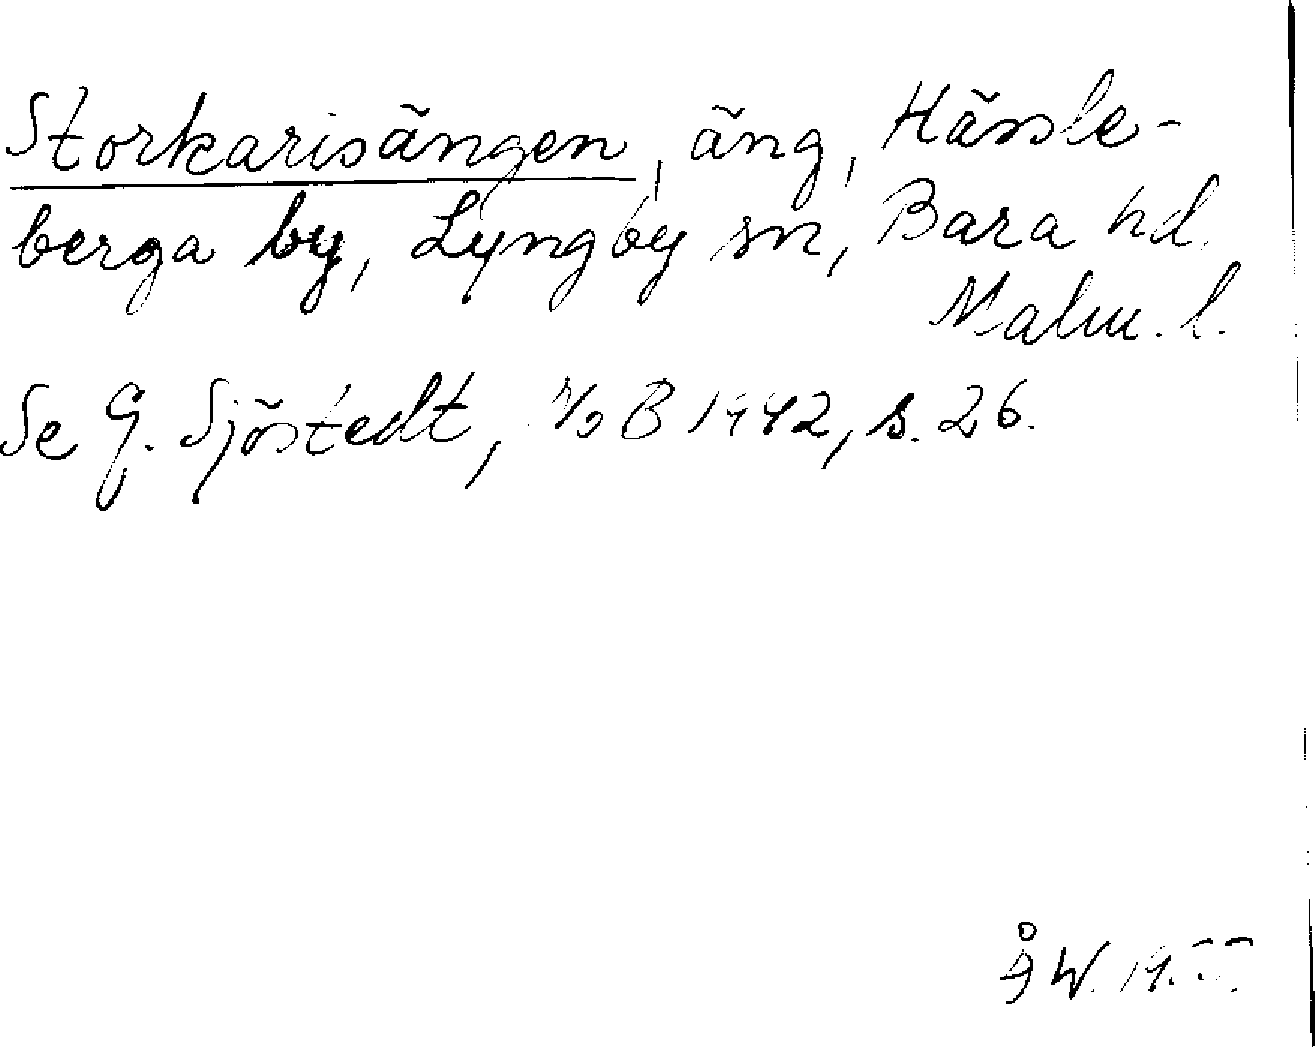 Storkarisängen, äng, Hässle-
berga by, Lyngby sn, Bara hd.
Malm. l.
Se G. Sjöstedt, B 1942, s. 26.
ÅW. 19